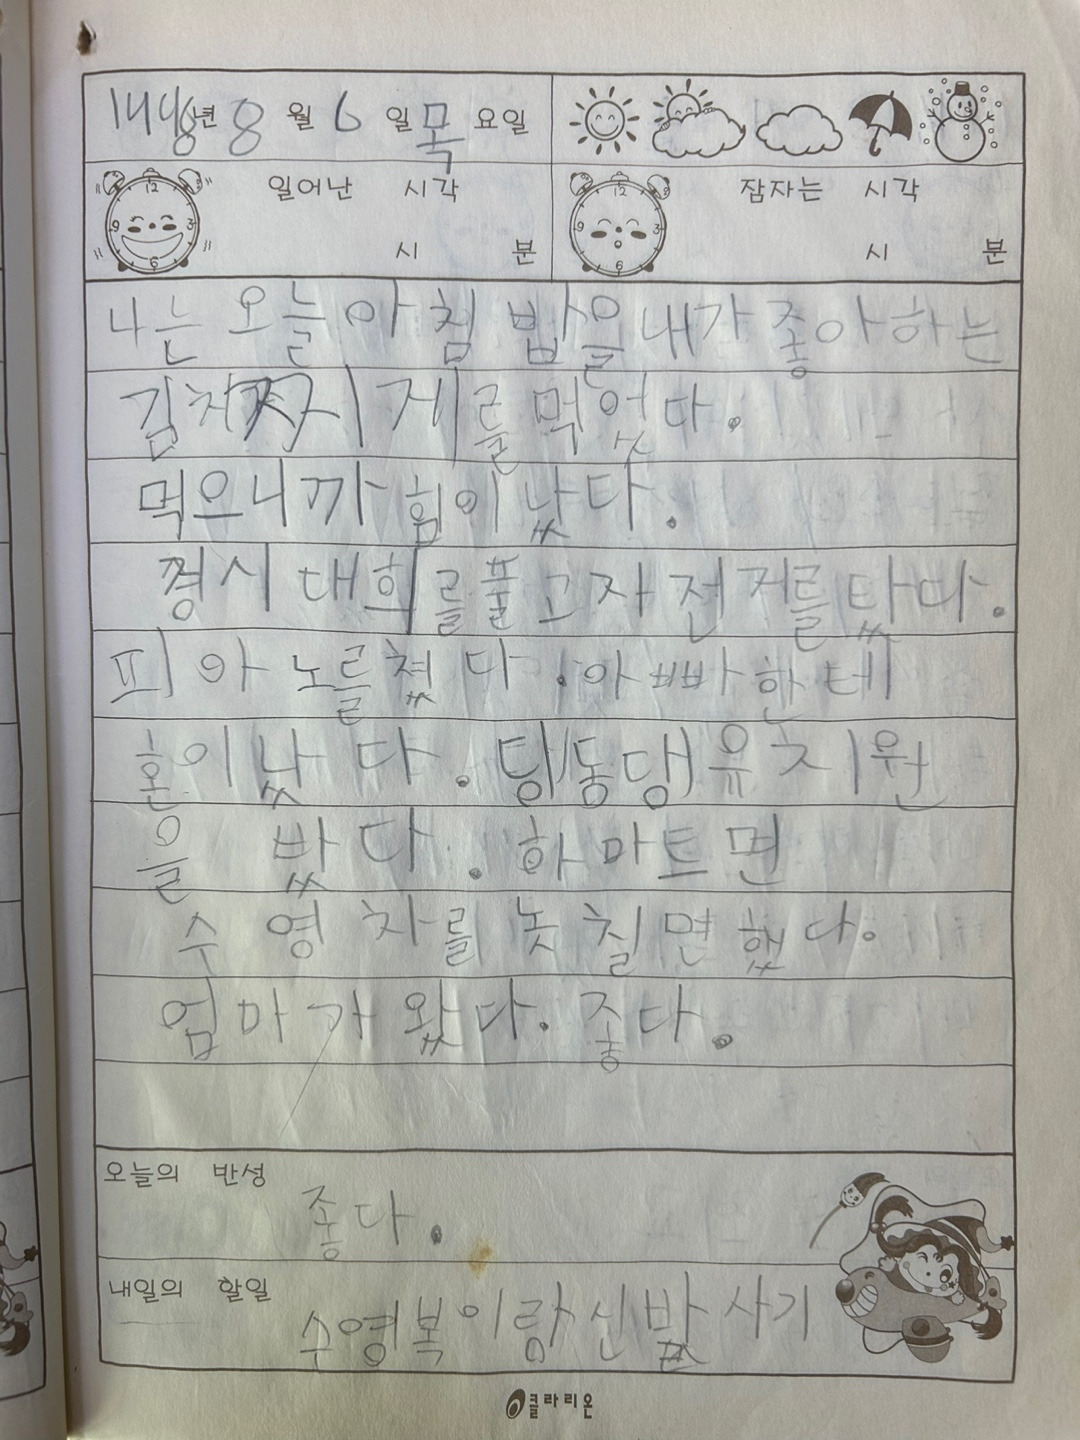 1998년 8월 6일 목요일
일어난 시각
시 분
잠자는 시각
시 분
나는 오늘 아침 밥을 내가 좋아하는
김치찌게를 먹었다.
먹으니까 힘이 났다.
경시 대회를 풀고 자전저를 탔다.
피아노를 쳤다. 아빠한테
혼이 났다. 딩동댕 유치원
을 밨다. 하마트면
수영차를 놋칠면했다.
엄마가 왔다. 좋다.
오늘의 반성
좋다.
내일의 할일
수영복이랑 신발 사기
클라리온